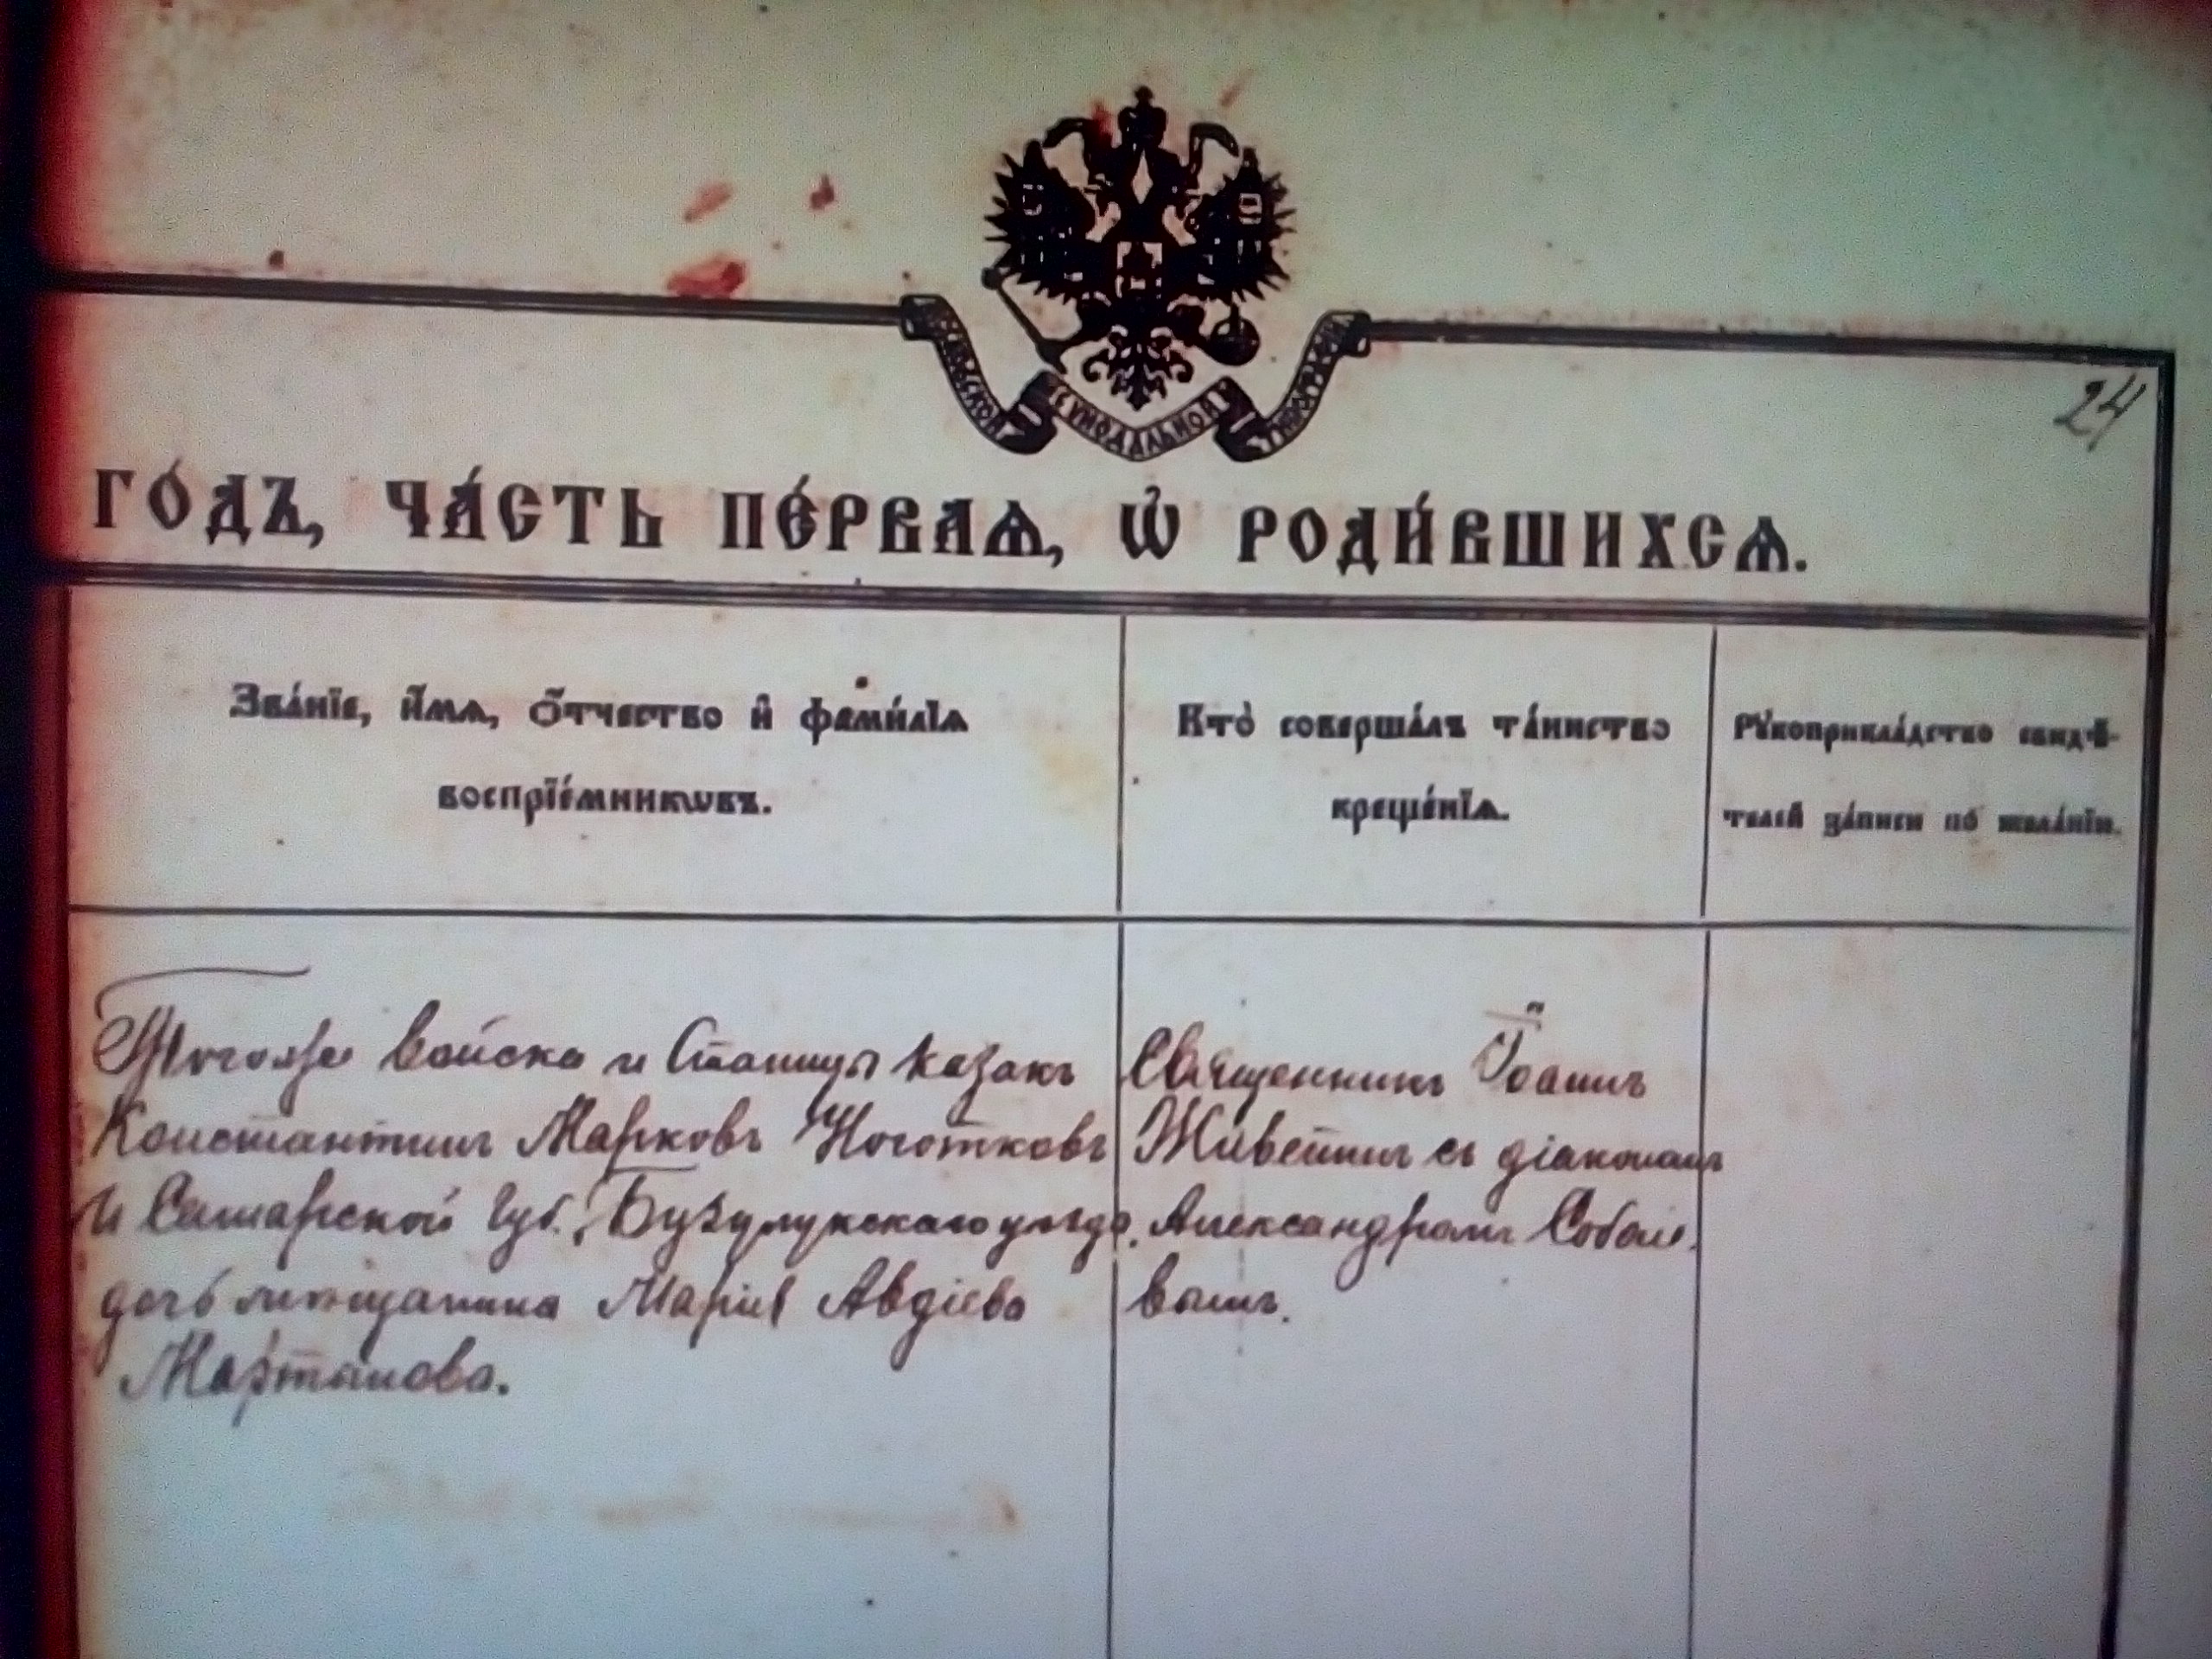 Московской Сѵнодальной Тѵпографїи
24
ГО́ДЪ, ЧА́СТЬ ПЕ́РВАѦ, Ѡ҆ РОДИ́ВШИХСѦ.
Зва́нїе, и҆́мѧ, ѻ҆́тчество и҆ фами́лїѧ
воспрїе́мникωвъ.
Кто̀ соверша́лъ та́инство
креще́нїѧ.
Рꙋкоприкла́дство свидѣ́-
телей за́писи по жела́нїю.
Тогоже войска и Станицы казакъ
Константинъ Марковъ Ноготковъ
и Самарской губ., Бузулукскаго уѣзда,
дочь мѣщанина Марія Авдіева
Мартанова.
Священникъ Іоаннъ
Живетинъ съ діакономъ
Александромъ Собол-
вымъ.